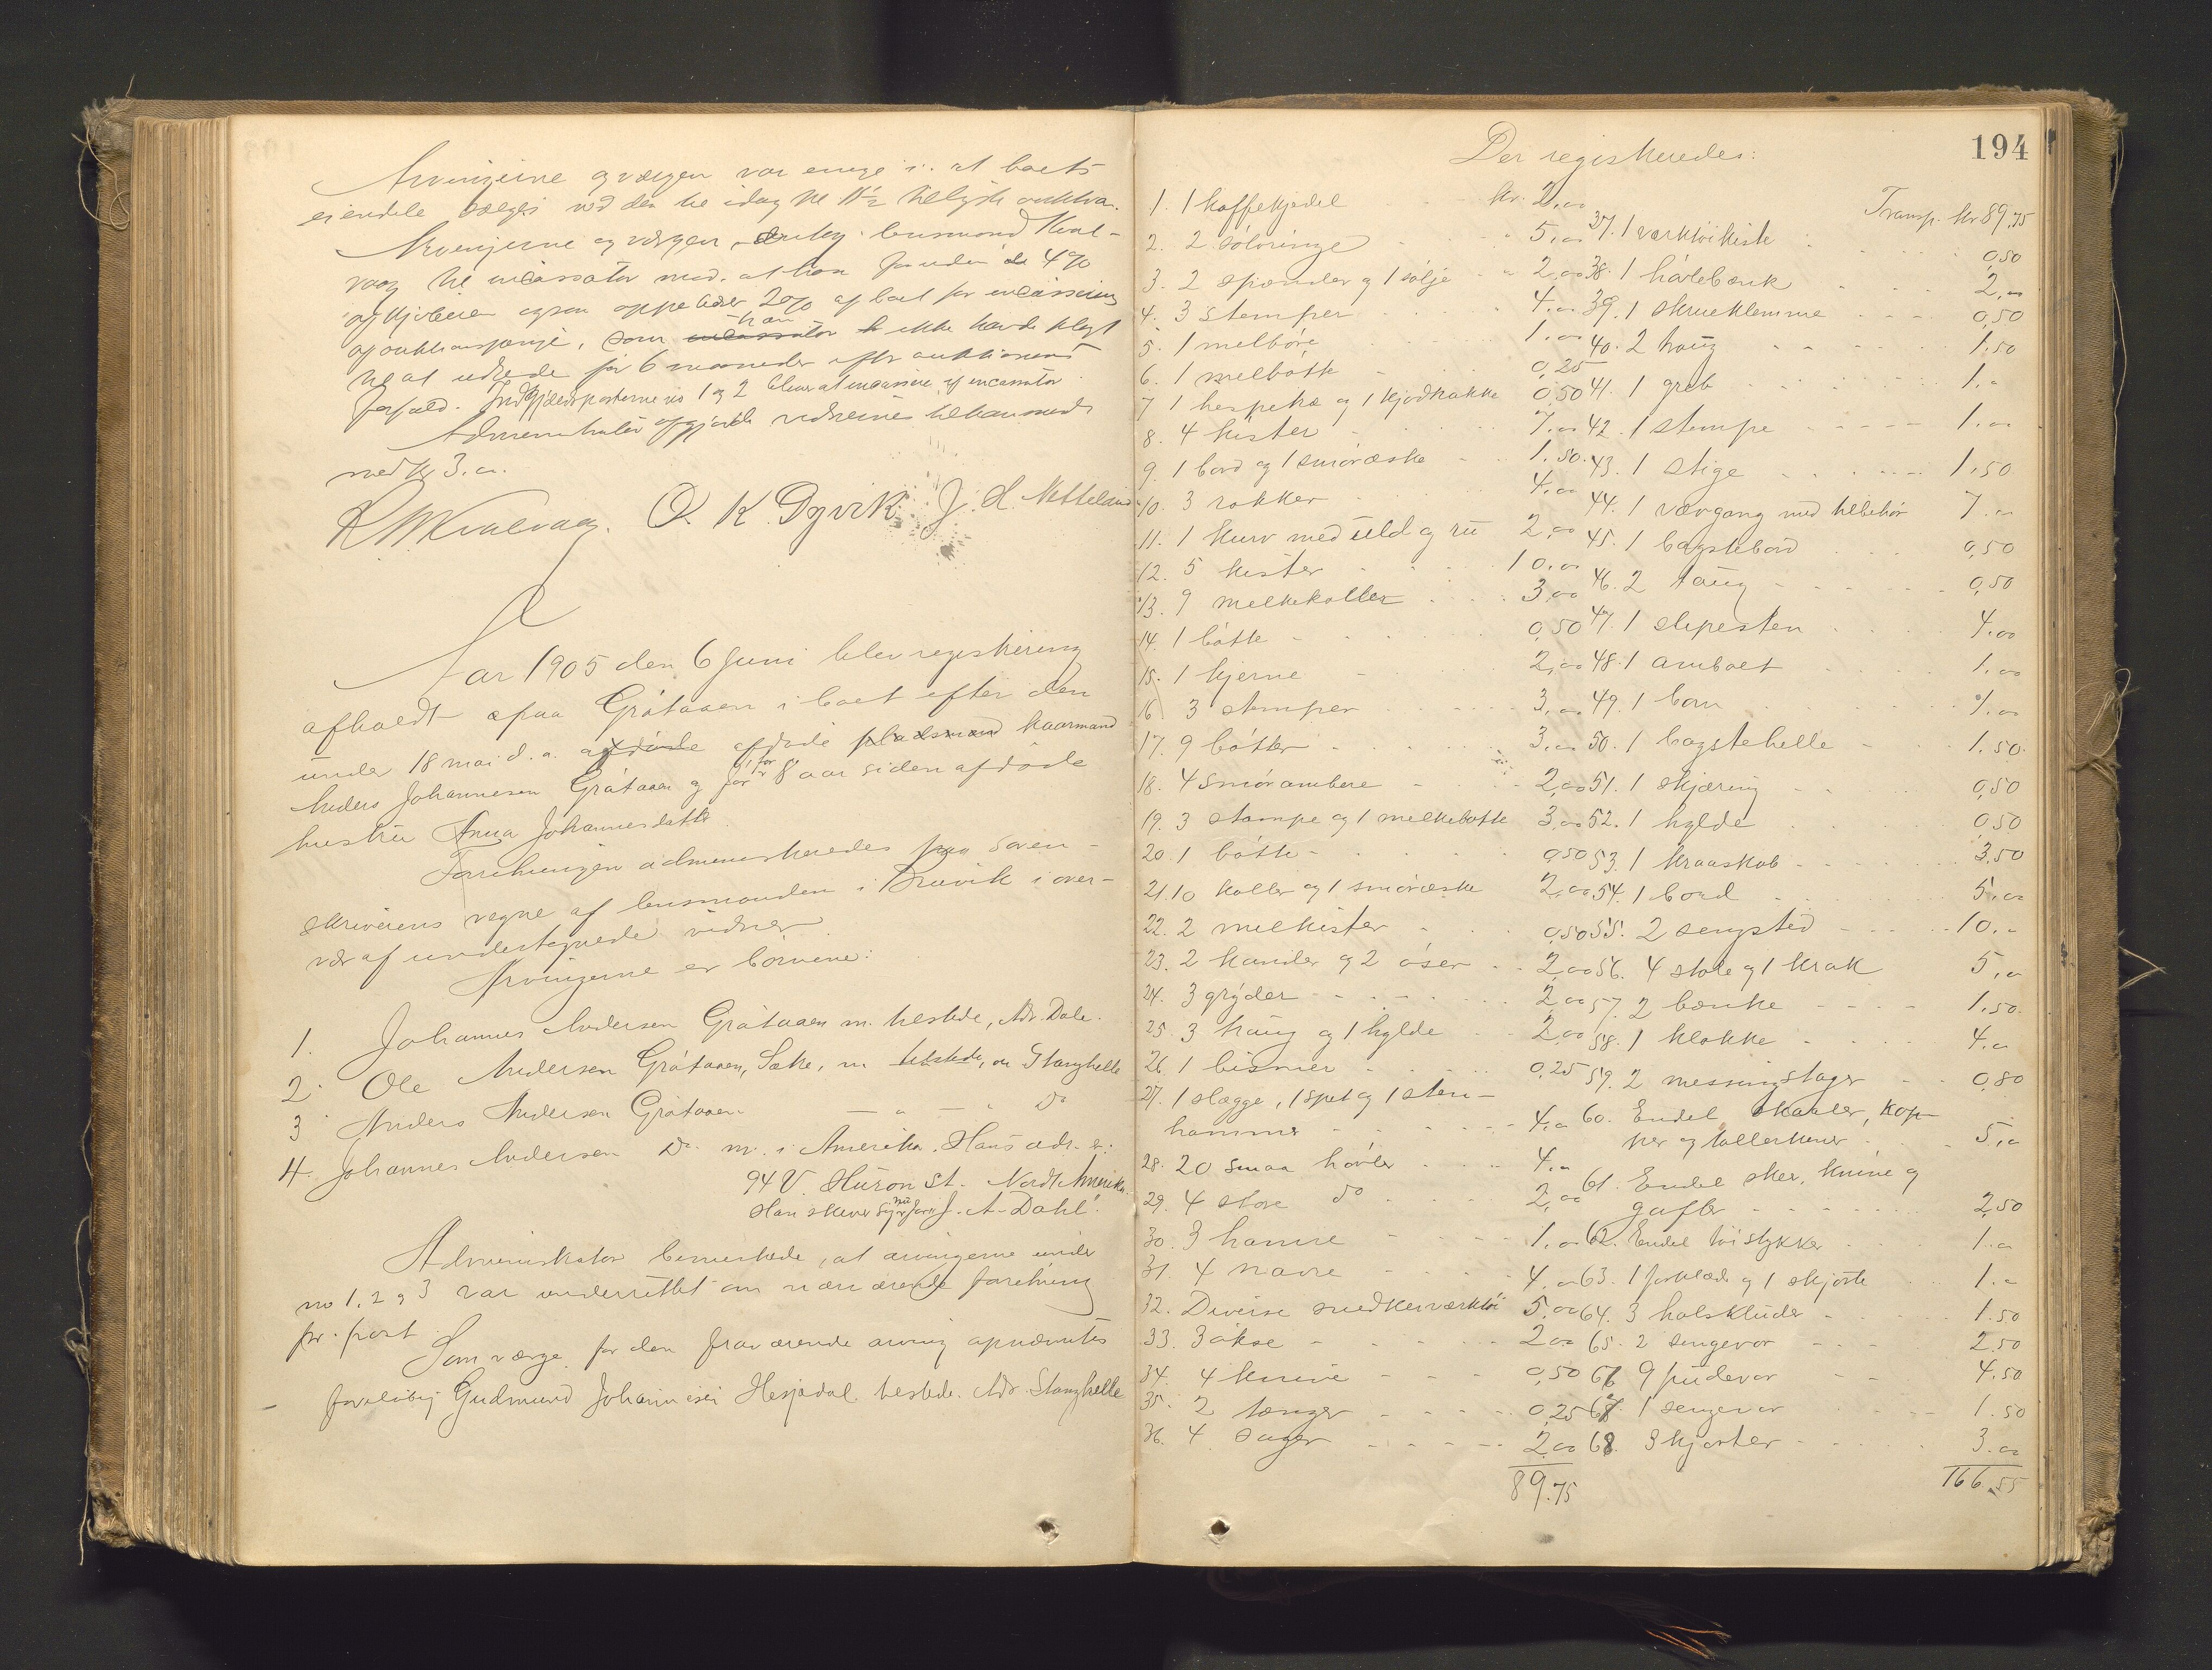 Arvingerne og værgen var enige i at boets
eiendele sælges ved den til idag kl 11½ tillyste auktion.
Arvingerne og værgen lensmand Kval-
vaag til incassator mod at han foruden de 4%
af kjøberen ogsaa oppebærer 2% af boet for incassering
af auktionspenge, som incassator han ikke havde pligt
til at udrede før 6 maaneder efter auktionens
forfald. Indgjældsposterne no 1 og 2 bliver at incassere af incassator
Administrator opgjorde vidnerne tilhaande
med kr 3.00.
R M Kvalvaag. O. K. Dyvik J. H. Nettelund
Aar 1905 den 6 Juni blev registrering
afholdt paa Gråtaaen i boet efter den
under 18 mai d. a. afdøde afdøde pladsmand kaarmand
Anders Johannesen Gråtaaen og for 8 aar siden afdøde
hustru Anna Johannesdatter.
Forretningen administreredes paa soren-
skriverens vegne af lensmanden i Bruvik i over-
vær af undertegnede vidner.
Arvingerne er børnene:
1. Johannes Andersen Gråtaaen m. tilstede, Adr. Dale.
2. Ole Andersen Gråtaaen, Sætre, m. tilstede, adr Stanghelle
3 Anders Andersen Gråtaaen — " — " Do
4. Johannes Andersen Do m. i Amerika. Hans adr. er:
94 V. Huron St. Nordt Amerika.
Han skriver sig nu for J. A. Dahl.
Administrator bemerkede, at arvingerne under
no 1. 2 og 3 var underrettet om nærværende forretning
pr. post.
Som værge for den fraværende arving opnævntes
foreløbig Gudmund Johannesen Hesjedal tilstede. Adr. Stanghelle
194
Der registreredes:
1. 1 kaffekjedel kr. 2,00
2. 2 sølvringe 5,00
3. 2 spænder og 1 sølje 2,00
4. 3 stemper 4,00
5. 1 melbøre 1,00
6. 1 melbøtte 0,25
7 1 hespetræ og 1 kjødkakke 0,50
8. 4 kister 7,00
9. 1 bord og 1 smøræske 1,50.
10. 3 rokker 4,00
11. 1 kurv med uld og ru 2,00
12. 5 kister 10,00
13. 9 melkekoller 3,00
14. 1 bøtte 0,50
15. 1 kjerne 2,00
16 3 stemper 3,00
17. 9 bøtter 3,00
18. 4 smørambere 2,00
19. 3 stampe og 1 melkebøtte 3,00
20. 1 bøtte 0,50
21. 10 koller og 1 smøræske 2,00
22. 2 melkister 0,50
23. 2 kander og 2 øser 2,00
24. 3 gryder 2,00
25. 3 traug og 1 hylde 2,00
26. 1 bismer 0,25
27. 1 slægge, 1 spet og 1 sten-
hammer 4,00
28. 20 smaa høvler 4,00
29. 4 store Do 2,00
30. 3 hamre 1,00
31. 4 navre 4,00
32. Diverse snedkerværktøi 5,00
33. 3 økse 2,00
34. 4 knive 0,50
35. 2 tænger 0,25
36. 4 sager 2,00
89.75
Transp. kr 89,75
37. 1 værktøikiste 0,50
38. 1 høvlebænk 2,00
39. 1 skrueklemme 0,50
40. 2 traug 1,50
41. 1 greb 1.00
42. 1 stempe 1.00
43. 1 stige 1,50
44. 1 vævgang med tilbehør 7.00
45. 1 bagstebord 0,50
46. 2 taug 0,50
47. 1 slipesten 4.00
48. 1 ambolt 1.00
49. 1 bom 1.00
50. 1 bagstehelle 1.50.
51. 1 skjæring 0,50
52. 1 hylde 0,50
53. 1 kraaskab 3.50
54. 1 bord 5,00
55. 2 sengsted 10.00
56. 4 stole og 1 krak 5,00
57. 2 bænke 1,50.
58. 1 klokke 4.00
59. 2 messingstager 0,80
60. Endel skaaler, kop-
per og tallerkener 5,00
61. Endel skeer, knive og
gafler 2,50
62. Endel tøistykker 1.00
63. 1 forklæde og 1 skjorte 1.00
64. 3 halskluder 1.50
65. 2 sengevor 2.50
66 9 pudevor 4.50
67. 1 sengevor 1.50
68. 3 skjorter 3.00
166,55